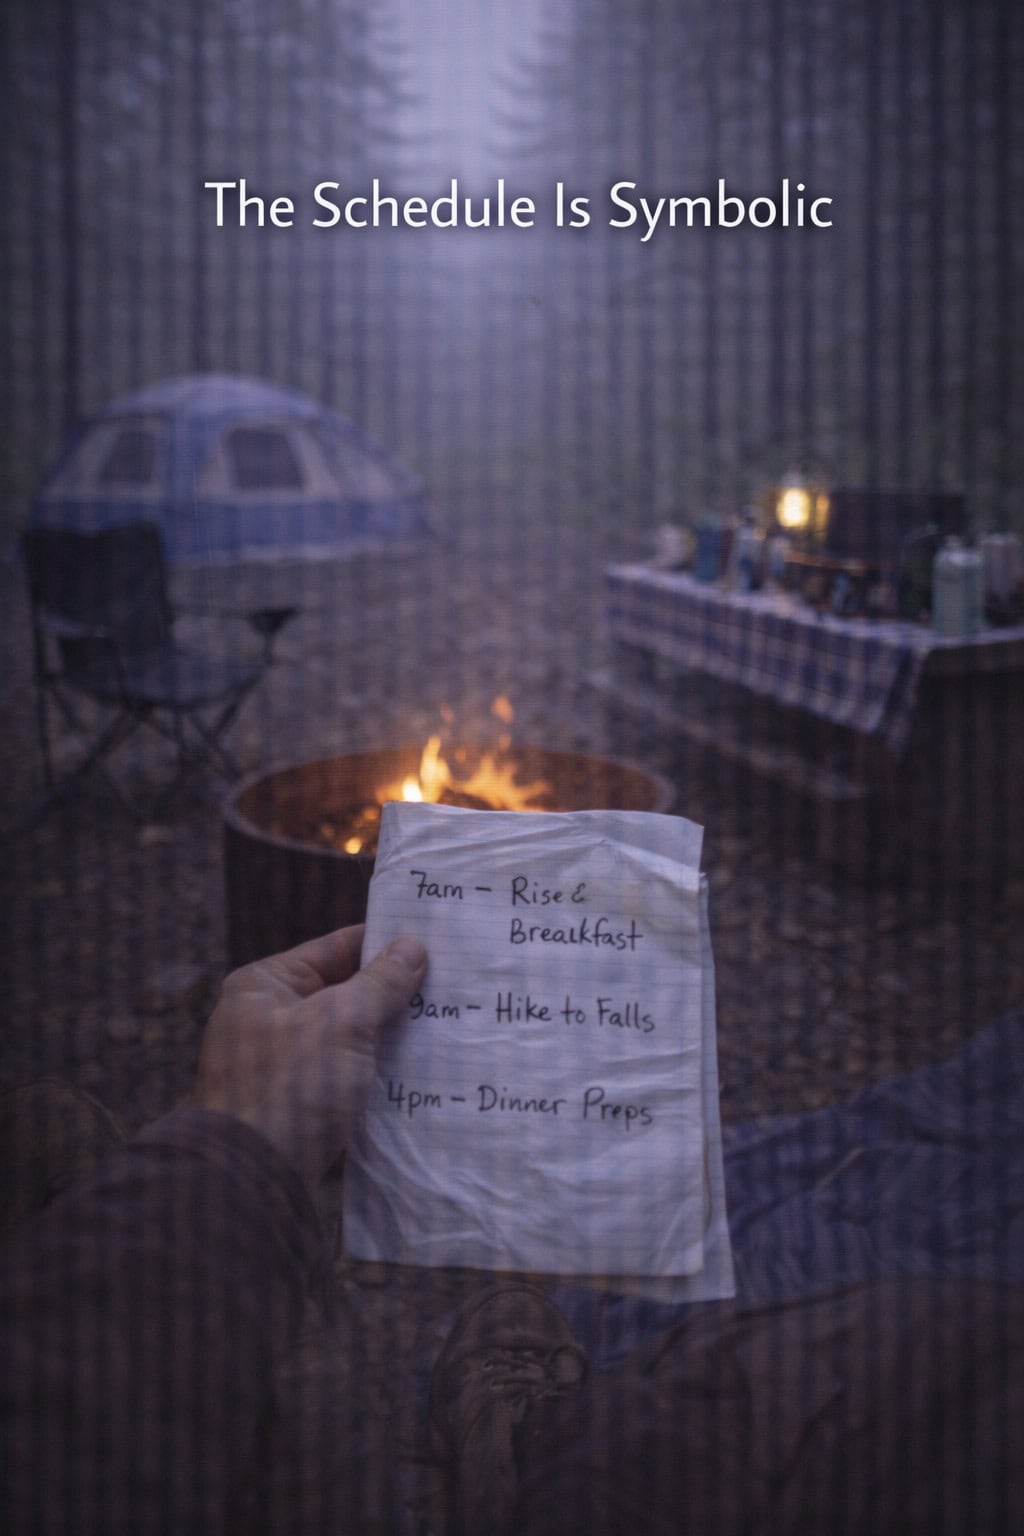 The Schedule Is Symbolic
7am – Rise &
Breakfast
9am – Hike to Falls
4pm – Dinner Preps